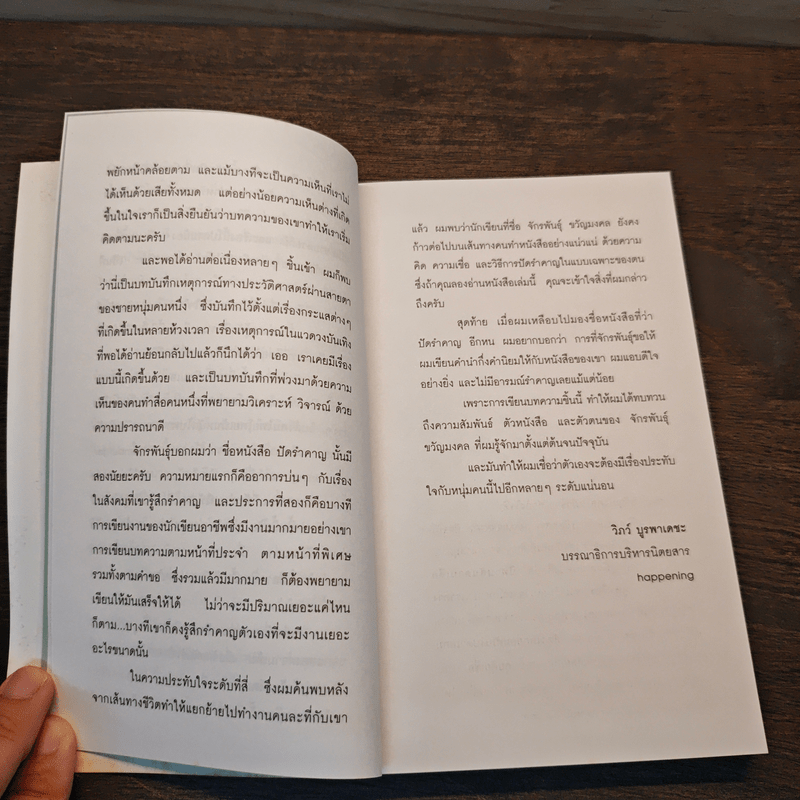 พยักหน้าคล้อยตาม และแม้บางทีจะเป็นความเห็นที่เราไม่
ได้เห็นด้วยเสียทั้งหมด แต่อย่างน้อยความเห็นต่างที่เกิด
ขึ้นในใจเราก็เป็นสิ่งยืนยันว่าบทความของเขาทำให้เราเริ่ม
คิดตามนะครับ
และพอได้อ่านต่อเนื่องหลายๆ ชิ้นเข้า ผมก็พบ
ว่านี่เป็นบทบันทึกเหตุการณ์ทางประวัติศาสตร์ผ่านสายตา
ของชายหนุ่มคนหนึ่ง ซึ่งบันทึกไว้ตั้งแต่เรื่องกระแสต่างๆ
ที่เกิดขึ้นในหลายห้วงเวลา เรื่องเหตุการณ์ในแวดวงบันเทิง
ที่พอได้อ่านย้อนกลับไปแล้วก็นึกได้ว่า เออ เราเคยมีเรื่อง
แบบนี้เกิดขึ้นด้วย และเป็นบทบันทึกที่พ่วงมาด้วยความ
เห็นของคนทำสื่อคนหนึ่งที่พยายามวิเคราะห์ วิจารณ์ ด้วย
ความปรารถนาดี
จักรพันธุ์บอกผมว่า ชื่อหนังสือ ปัดรำคาญ นั้นมี
สองนัยยะครับ ความหมายแรกก็คืออาการบ่นๆ กับเรื่อง
ในสังคมที่เขารู้สึกรำคาญ และประการที่สองก็คือบางที
การเขียนงานของนักเขียนอาชีพซึ่งมีงานมากมายอย่างเขา
การเขียนบทความตามหน้าที่ประจำ ตามหน้าที่พิเศษ
รวมทั้งตามคำขอ ซึ่งรวมแล้วมีมากมาย ก็ต้องพยายาม
เขียนให้มันเสร็จให้ได้ ไม่ว่าจะมีปริมาณเยอะแค่ไหน
ก็ตาม...บางทีเขาก็คงรู้สึกรำคาญตัวเองที่จะมีงานเยอะ
อะไรขนาดนั้น
ในความประทับใจระดับที่สี่ ซึ่งผมค้นพบหลัง
จากเส้นทางชีวิตทำให้แยกย้ายไปทำงานคนละที่กับเขา
แล้ว ผมพบว่านักเขียนที่ชื่อ จักรพันธุ์ ขวัญมงคล ยังคง
ก้าวต่อไปบนเส้นทางคนทำหนังสืออย่างแน่วแน่ ด้วยความ
คิด ความเชื่อ และวิธีการปัดรำคาญในแบบเฉพาะของตน
ซึ่งถ้าคุณลองอ่านหนังสือเล่มนี้ คุณจะเข้าใจสิ่งที่ผมกล่าว
ถึงครับ
สุดท้าย เมื่อผมเหลือบไปมองชื่อหนังสือที่ว่า
ปัดรำคาญ อีกหน ผมอยากบอกว่า การที่จักรพันธุ์ขอให้
ผมเขียนคำนำกึ่งคำนิยมให้กับหนังสือของเขา ผมแอบดีใจ
อย่างยิ่ง และไม่มีอารมณ์รำคาญเลยแม้แต่น้อย
เพราะการเขียนบทความชิ้นนี้ ทำให้ผมได้ทบทวน
ถึงความสัมพันธ์ ตัวหนังสือ และตัวตนของ จักรพันธุ์
ขวัญมงคล ที่ผมรู้จักมาตั้งแต่ต้นจนปัจจุบัน
และมันทำให้ผมเชื่อว่าตัวเองจะต้องมีเรื่องประทับ
ใจกับหนุ่มคนนี้ไปอีกหลายๆ ระดับแน่นอน
วิภว์ บูรพาเดชะ
บรรณาธิการบริหารนิตยสาร
happening